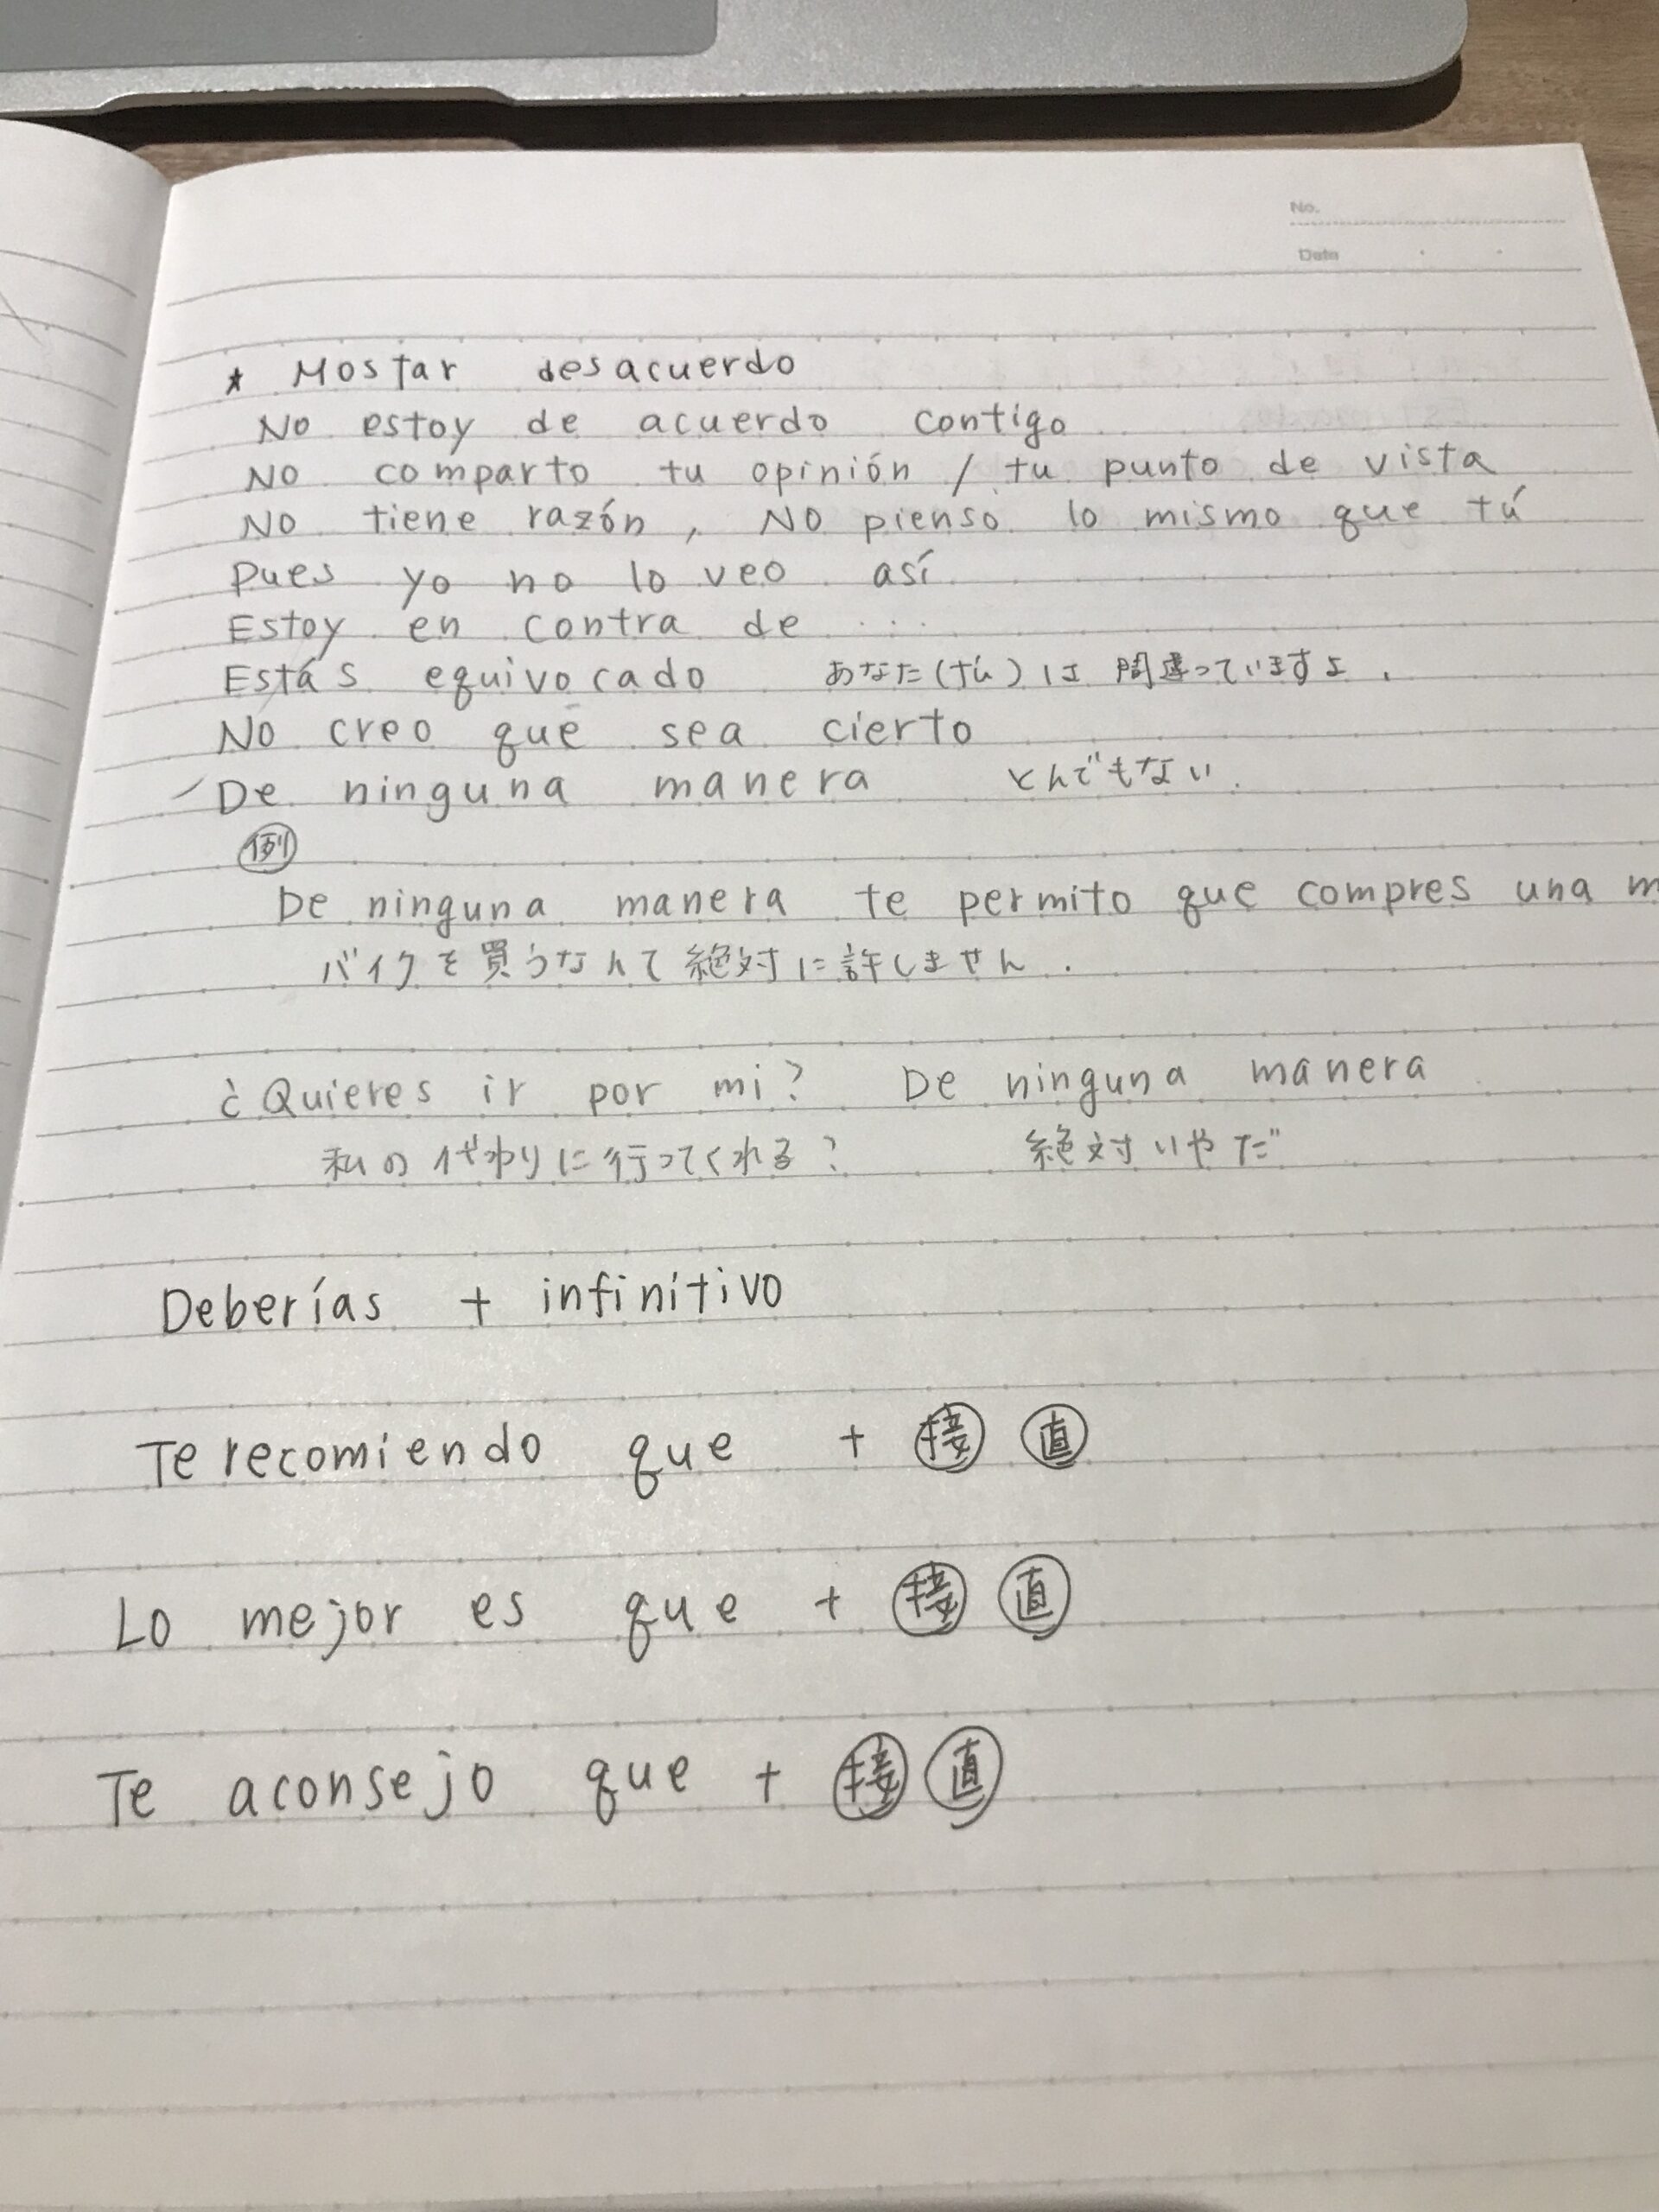 No.
Date
★ Mostar desacuerdo
No estoy de acuerdo contigo
No comparto tu opinión / tu punto de vista
No tiene razón, No pienso lo mismo que tú
Pues yo no lo veo así
Estoy en contra de ....
Estás equivocado あなた(tú)は間違っていますよ.
No creo que sea cierto
De ninguna manera とんでもない.
例
De ninguna manera te permito que compres una m
バイクを買うなんて絶対に許しません.
¿Quieres ir por mi? De ninguna manera
私の代わりに行ってくれる? 絶対いやだ
Deberías + infinitivo
Te recomiendo que + 接 直
Lo mejor es que + 接 直
Te aconsejo que + 接 直